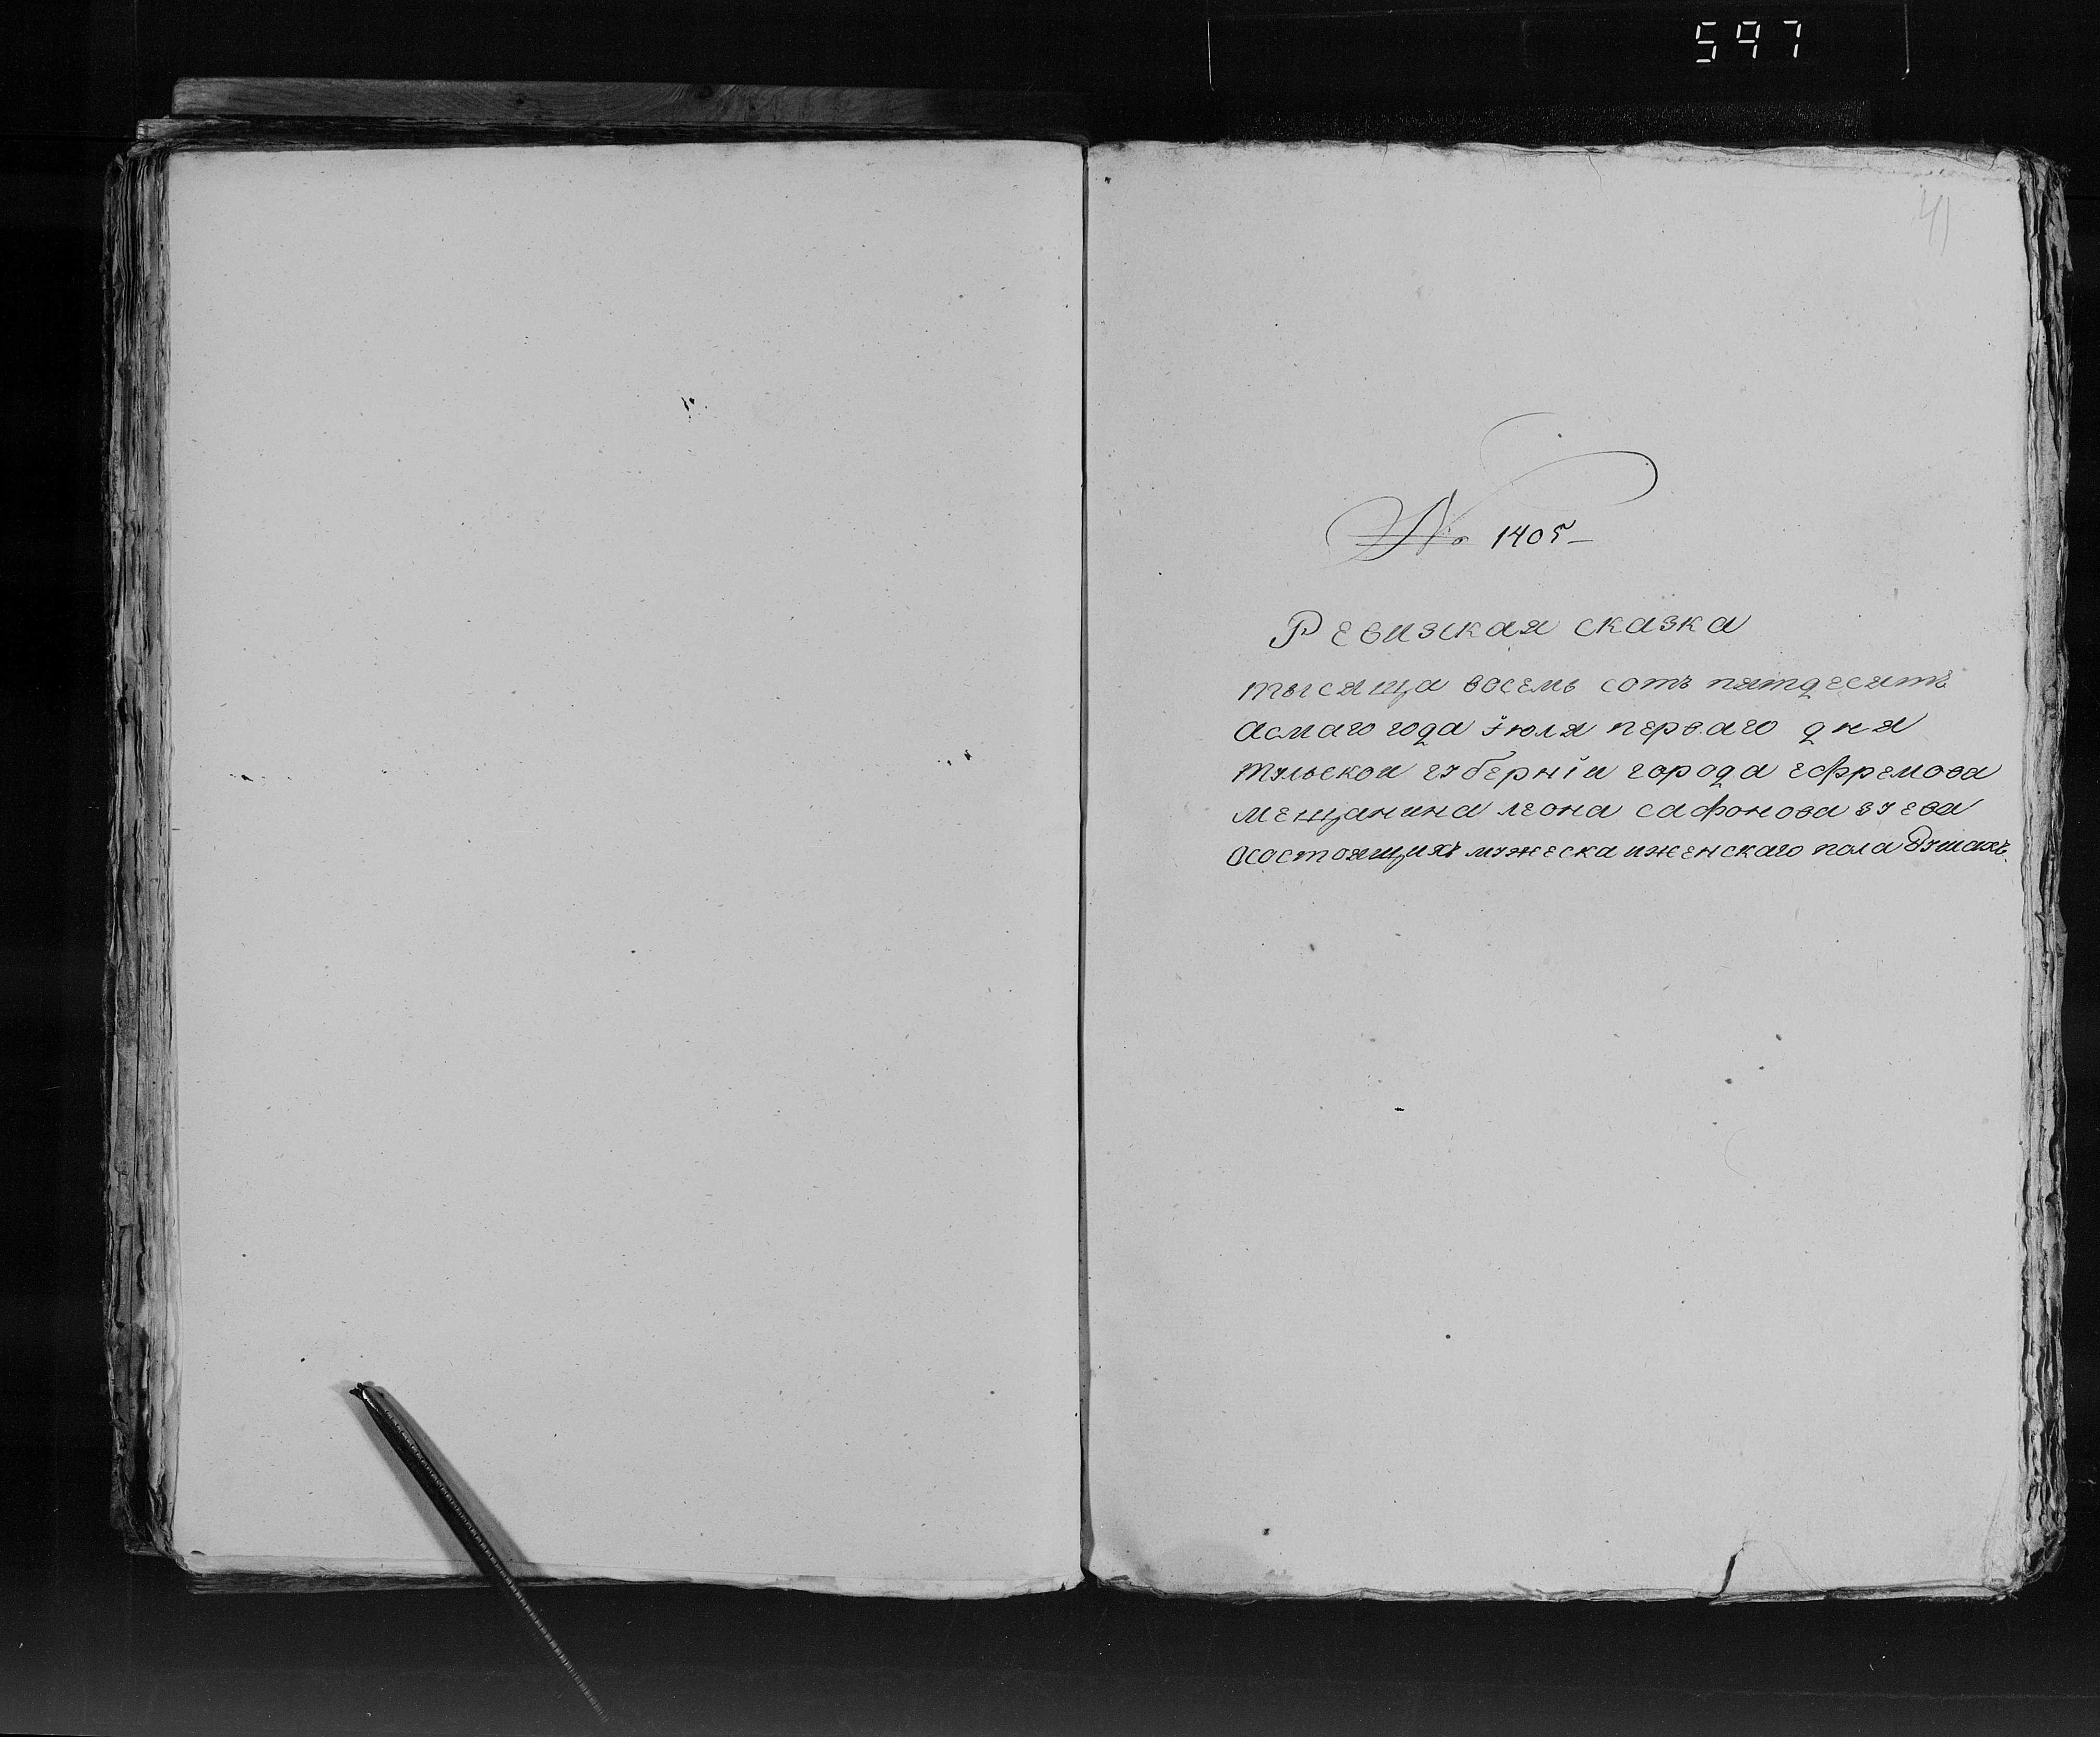 597
41
№ 1405
Ревизская сказка
тысяща восемь сотъ пятдесятъ
асмаго года Iюля перваго дня
тульской губернiи города ефремова
мещанина леона сафонова зуева
осостоящихъ мужеска иженскаго пола Душахъ.